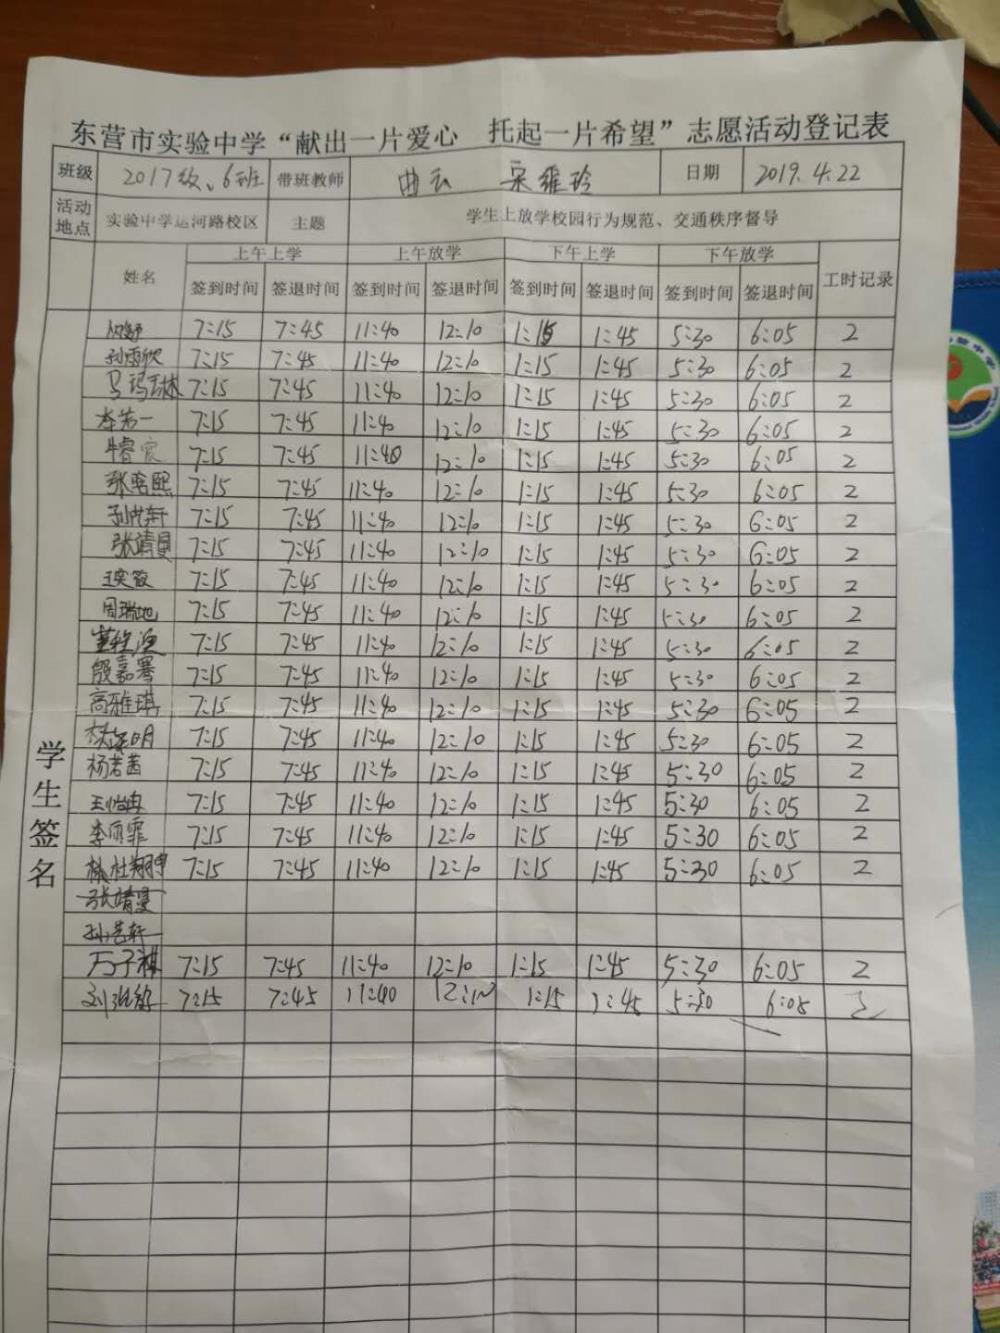 东营市实验中学“献出一片爱心 托起一片希望”志愿活动登记表
班级 2017级、6班 带班教师 曲云 宋维玲 日期 2019.4.22
活动地点 实验中学运河路校区 主题 学生上放学校园行为规范、交通秩序督导
姓名 上午上学 上午放学 下午上学 下午放学 工时记录
签到时间 签退时间 签到时间 签退时间 签到时间 签退时间 签到时间 签退时间
学生签名
7:15 7:45 11:40 12:10 1:15 1:45 5:30 6:05 2
孙雨欣 7:15 7:45 11:40 12:10 1:15 1:45 5:30 6:05 2
马玛琳 7:15 7:45 11:40 12:10 1:15 1:45 5:30 6:05 2
李若一 7:15 7:45 11:40 12:10 1:15 1:45 5:30 6:05 2
牛睿宸 7:15 7:45 11:40 12:10 1:15 1:45 5:30 6:05 2
张晗熙 7:15 7:45 11:40 12:10 1:15 1:45 5:30 6:05 2
孙艺轩 7:15 7:45 11:40 12:10 1:15 1:45 5:30 6:05 2
张靖曼 7:15 7:45 11:40 12:10 1:15 1:45 5:30 6:05 2
王奕笯 7:15 7:45 11:40 12:10 1:15 1:45 5:30 6:05 2
周瑞地 7:15 7:45 11:40 12:10 1:15 1:45 5:30 6:05 2
7:15 7:45 11:40 12:10 1:15 1:45 5:30 6:05 2
殷嘉骞 7:15 7:45 11:40 12:10 1:15 1:45 5:30 6:05 2
高雅琪 7:15 7:45 11:40 12:10 1:15 1:45 5:30 6:05 2
7:15 7:45 11:40 12:10 1:15 1:45 5:30 6:05 2
杨若茜 7:15 7:45 11:40 12:10 1:15 1:45 5:30 6:05 2
王怡冉 7:15 7:45 11:40 12:10 1:15 1:45 5:30 6:05 2
李雨霏 7:15 7:45 11:40 12:10 1:15 1:45 5:30 6:05 2
杜翔宇 7:15 7:45 11:40 12:10 1:15 1:45 5:30 6:05 2
张靖曼
孙艺轩
万子祺 7:15 7:45 11:40 12:10 1:15 1:45 5:30 6:05 2
7:15 7:45 11:40 12:10 1:15 1:45 5:30 6:05 2